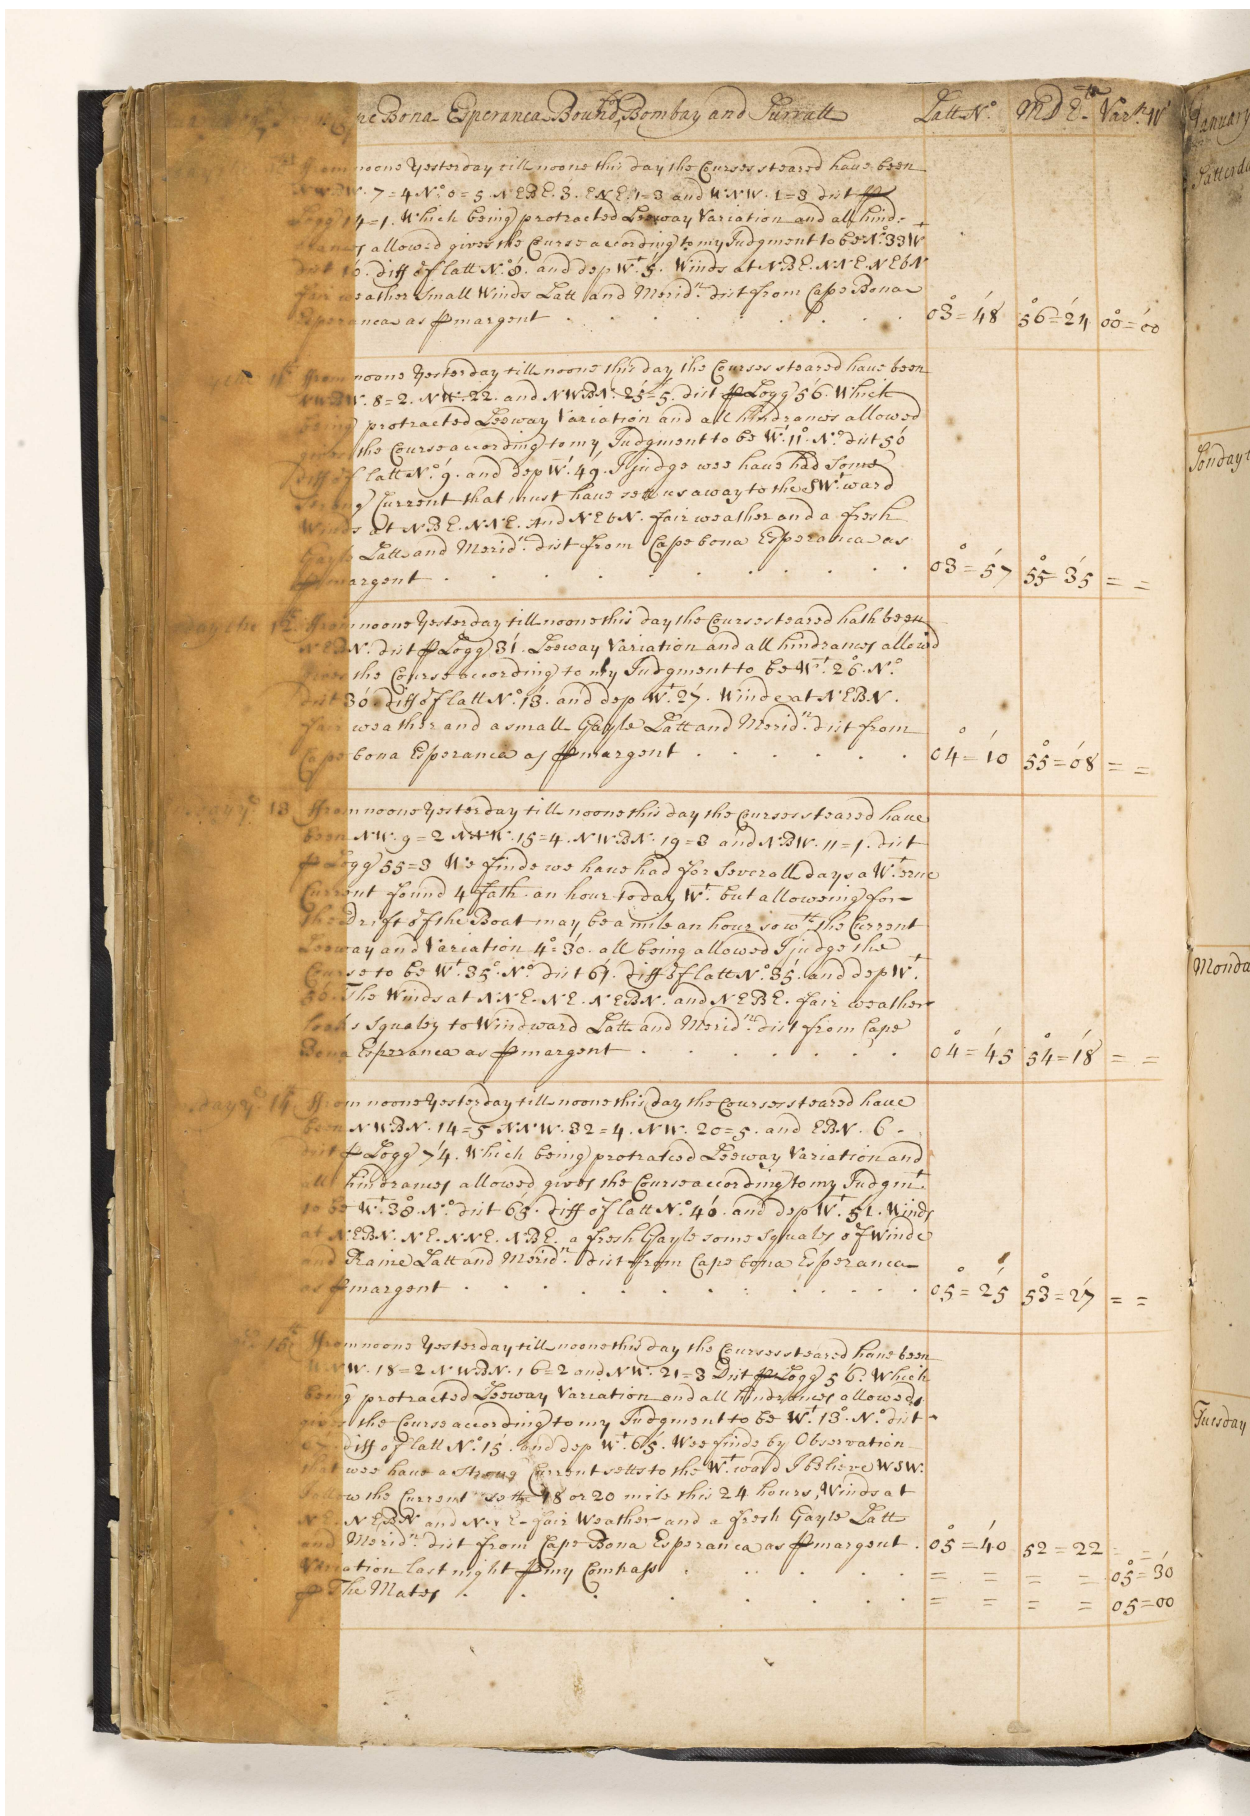 Bona Esperanca Bound Bombay and Surratt Latt N.º M D E.ⁿᶜᵉ Var.ⁿ Wᵗ
ffrom noone Yesterday till noone this day the Courses steared have been
NWBW. 7=4 N.º 0=5 NEBE. 3. ENE. 1=3 and WNW. 1=3 dist ⅌
Logg 14=1. Which being protracted Leeway Variation and all hind=
rances allowed gives the Course according to my Judgment to be N.º 33 Wᵗ
dist 10. diff of latt N.º 8. and dep Wᵗ 5. Winds at NBE. NNE. NEbN
fair weather Small Winds Latt and Merid.ⁿ dist from Cape Bona
Esperanca as ⅌ margent 03°=48' 56°=24' 00°=00'
11 ffrom noone Yesterday till noone this day the Courses steared have been
NWBW. 8=2. NW. 22. and NWBN. 25=5. dist ⅌ Logg 56. Which
being protracted Leeway Variation and all hindrances allowed
gives the Course according to my Judgment to be Wᵗ 11° N.º dist 50
diff of latt N.º 9. and dep Wᵗ. 49. I judge wee have had some
strong Current that must have sett us away to the SWᵗ ward
Winds at NBE. NNE. And NEbN. fair weather and a fresh
Gayle Latt and Merid.ⁿ dist from Cape bona Esperanca as
⅌ margent 03°=57' 55°=35' = =
day the 12 ffrom noone Yesterday till noone this day the Courses steared hath been
NEBN. dist ⅌ Logg 31. Leeway Variation and all hindrances allowed
gives the Course according to my Judgment to be Wᵗ. 26° N.º
dist 30. diff of latt N.º 13. and dep Wᵗ 27. Winde at NEBN.
fair weather and a small Gayle Latt and Merid.ⁿ dist from
Cape bona Esperanca as ⅌ margent 04°=10' 55°=08' = =
13 ffrom noone Yesterday till noone this day the Courses steared have
been NW. 9=2 NNW. 15=4. NWBN. 19=3 and NBW. 11=1. dist
⅌ Logg 55=3 We finde we have had for Severall days a Wᵗ erne
Current found 4 fath. an hour to day Wᵗ. but allowing for
the Drift of the Boat may be a mile an hour so wᵗʰ the Current
Leeway and Variation 4°=30'. all being allowed I judge the
Course to be Wᵗ. 35° N.º dist 61. diff of latt N.º 35. and dep Wᵗ.
50. The Winds at NNE. NE. NEBN. and NEBE. fair weather
looks Squaley to Windward Latt and Merid.ⁿ dist from Cape
Bona Esperanca as ⅌ margent 04°=45' 54°=18' = =
day yᵉ 14ᵗʰ ffrom noone Yesterday till noone this day the Courses steared have
been NWBN. 14=5 NNW. 32=4. NW. 20=5. and EBN. 6.
dist ⅌ Logg 74. Which being protracted Leeway Variation and
all hindrances allowed gives the Course according to my Judgmᵗ.
to be Wᵗ. 38° N.º dist 65. diff of latt N.º 40. and dep Wᵗ. 51. Winds
at NEBN. NE. NNE. NBE. a fresh Gayle some Squales of Winde
and Raine Latt and Merid.ⁿ dist from Cape bona Esperanca
as ⅌ margent 05°=25' 53°=27' = =
15ᵗʰ ffrom noone Yesterday till noone this day the Courses steared have been
WNW. 18=2 NWBN. 16=2 and NW. 21=3 Dist ⅌ Logg 56. Which
being protracted Leeway Variation and all hindrances allowed
gives the Course according to my Judgment to be Wᵗ. 13° N.º dist
67. diff of latt N.º 15. and dep Wᵗ. 65. Wee finde by Observation
that wee have a Strong Current setts to the Wᵗ ward I believe WSW.
I allow the Current setts 18 or 20 mile this 24 hours, Winds at
NE. NEBN and NNE. fair Weather and a fresh Gayle Latt
and Merid.ⁿ dist from Cape Bona Esperanca as ⅌ margent 05°=40' 52=22 = =
Variation last night ⅌ my Compass = = = = 05°=30'
⅌ The Mates = = = = 05=00
January
Satterda
Sonday
Monda
Tuesday